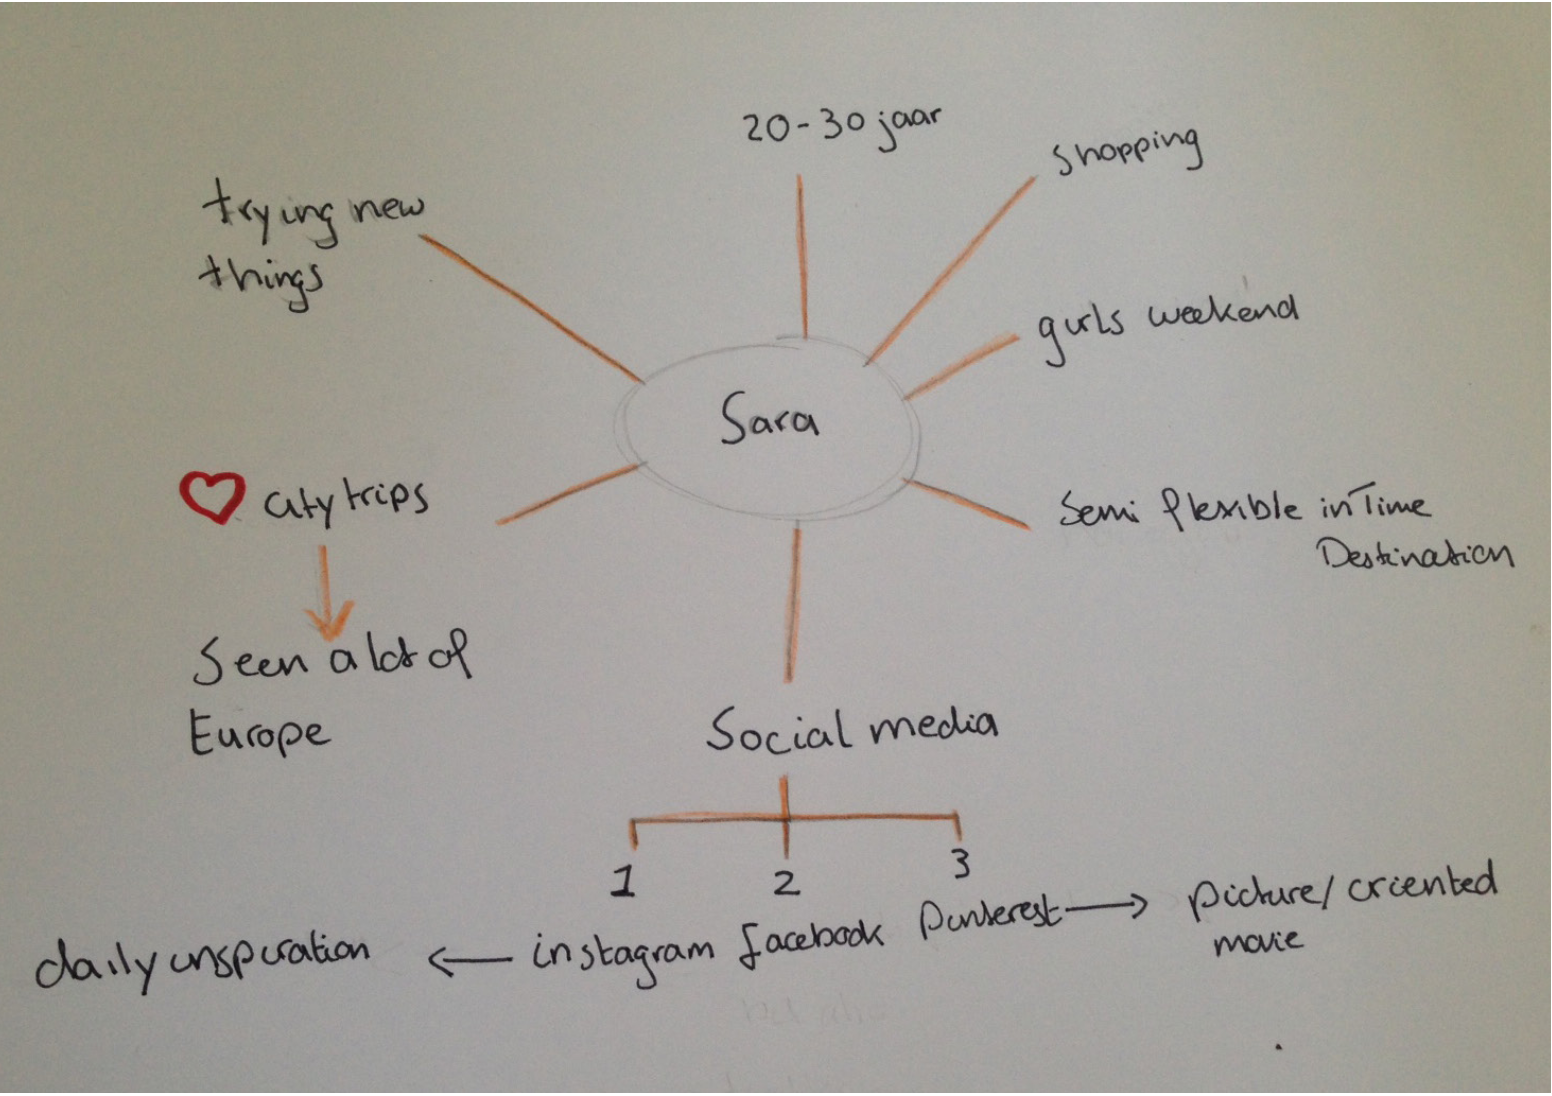 20-30 jaar
shopping
trying new
things
girls weekend
Sara
♡ city trips
Semi flexible in Time
Destination
Seen a lot of
Europe
Social media
1
2
3
daily inspiration ← instagram
facebook
pinterest → picture/ oriented
movie